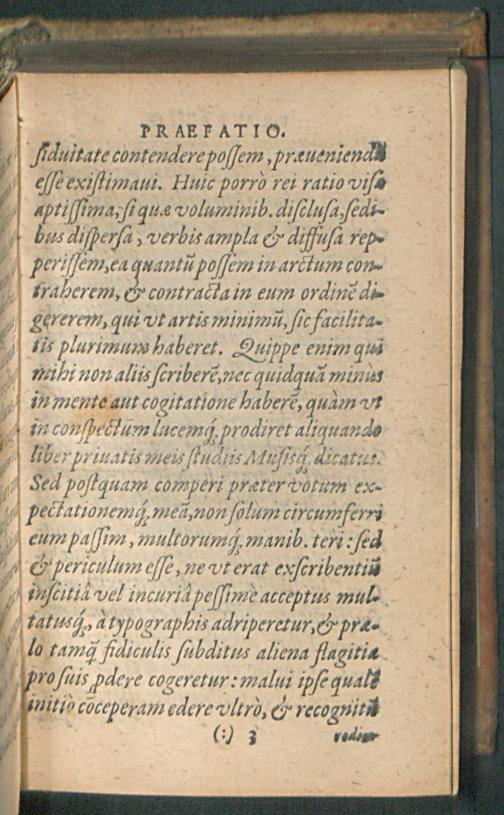 PRAEFATIO.
ſiduitate contendere poſſem, præueniendū
eſſe exiſtimaui. Huic porrò rei ratio viſa
aptiſſima, ſi quæ voluminib. diſcluſa, ſedi-
bus diſperſa, verbis ampla & diffuſa rep-
periſſem, ea quantū poſſem in arctum con-
traherem, & contracta in eum ordinē di-
gererem, qui vt artis minimū, ſic facilita-
tis plurimum haberet. Quippe enim qui
mihi non aliis ſcriberē, nec quidquā minùs
in mente aut cogitatione haberē, quàm vt
in conſpectum lucemq́; prodiret aliquando
liber priuatis meis ſtudiis Muſisq́; dicatus.
Sed poſtquam comperi præter votum ex-
pectationemq́; meā, non ſolum circumferri
eum paſſim, multorumq́; manib. teri: ſed
& periculum eſſe, ne vt erat exſcribentiū
inſcitiâ vel incuriâ peſſimè acceptus mul-
tatusq́;, à typographis adriperetur, & præ-
lo tamꝗ̃ fidiculis ſubditus aliena flagitia
pro ſuis ꝓdere cogeretur: malui ipſe qualē
initiò cōceperam edere vltrò, & recognitū
(:) 3
redier